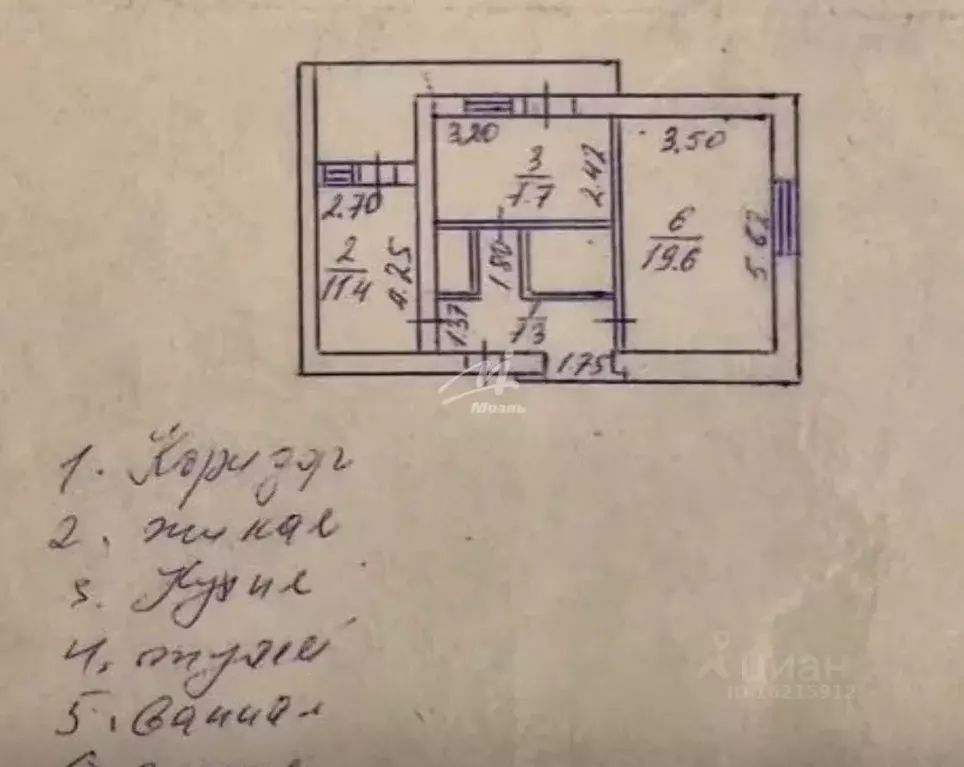 3.20
3.50
3
7.7
2.42
2.70
2
11.4
4.25
1.80
6
19.6
5.62
1.37
7.3
1.75
Моэль
1. Коридор
2. жилая
3. Кухня
4. туалет
5. Ванная
циан
ID 16215912